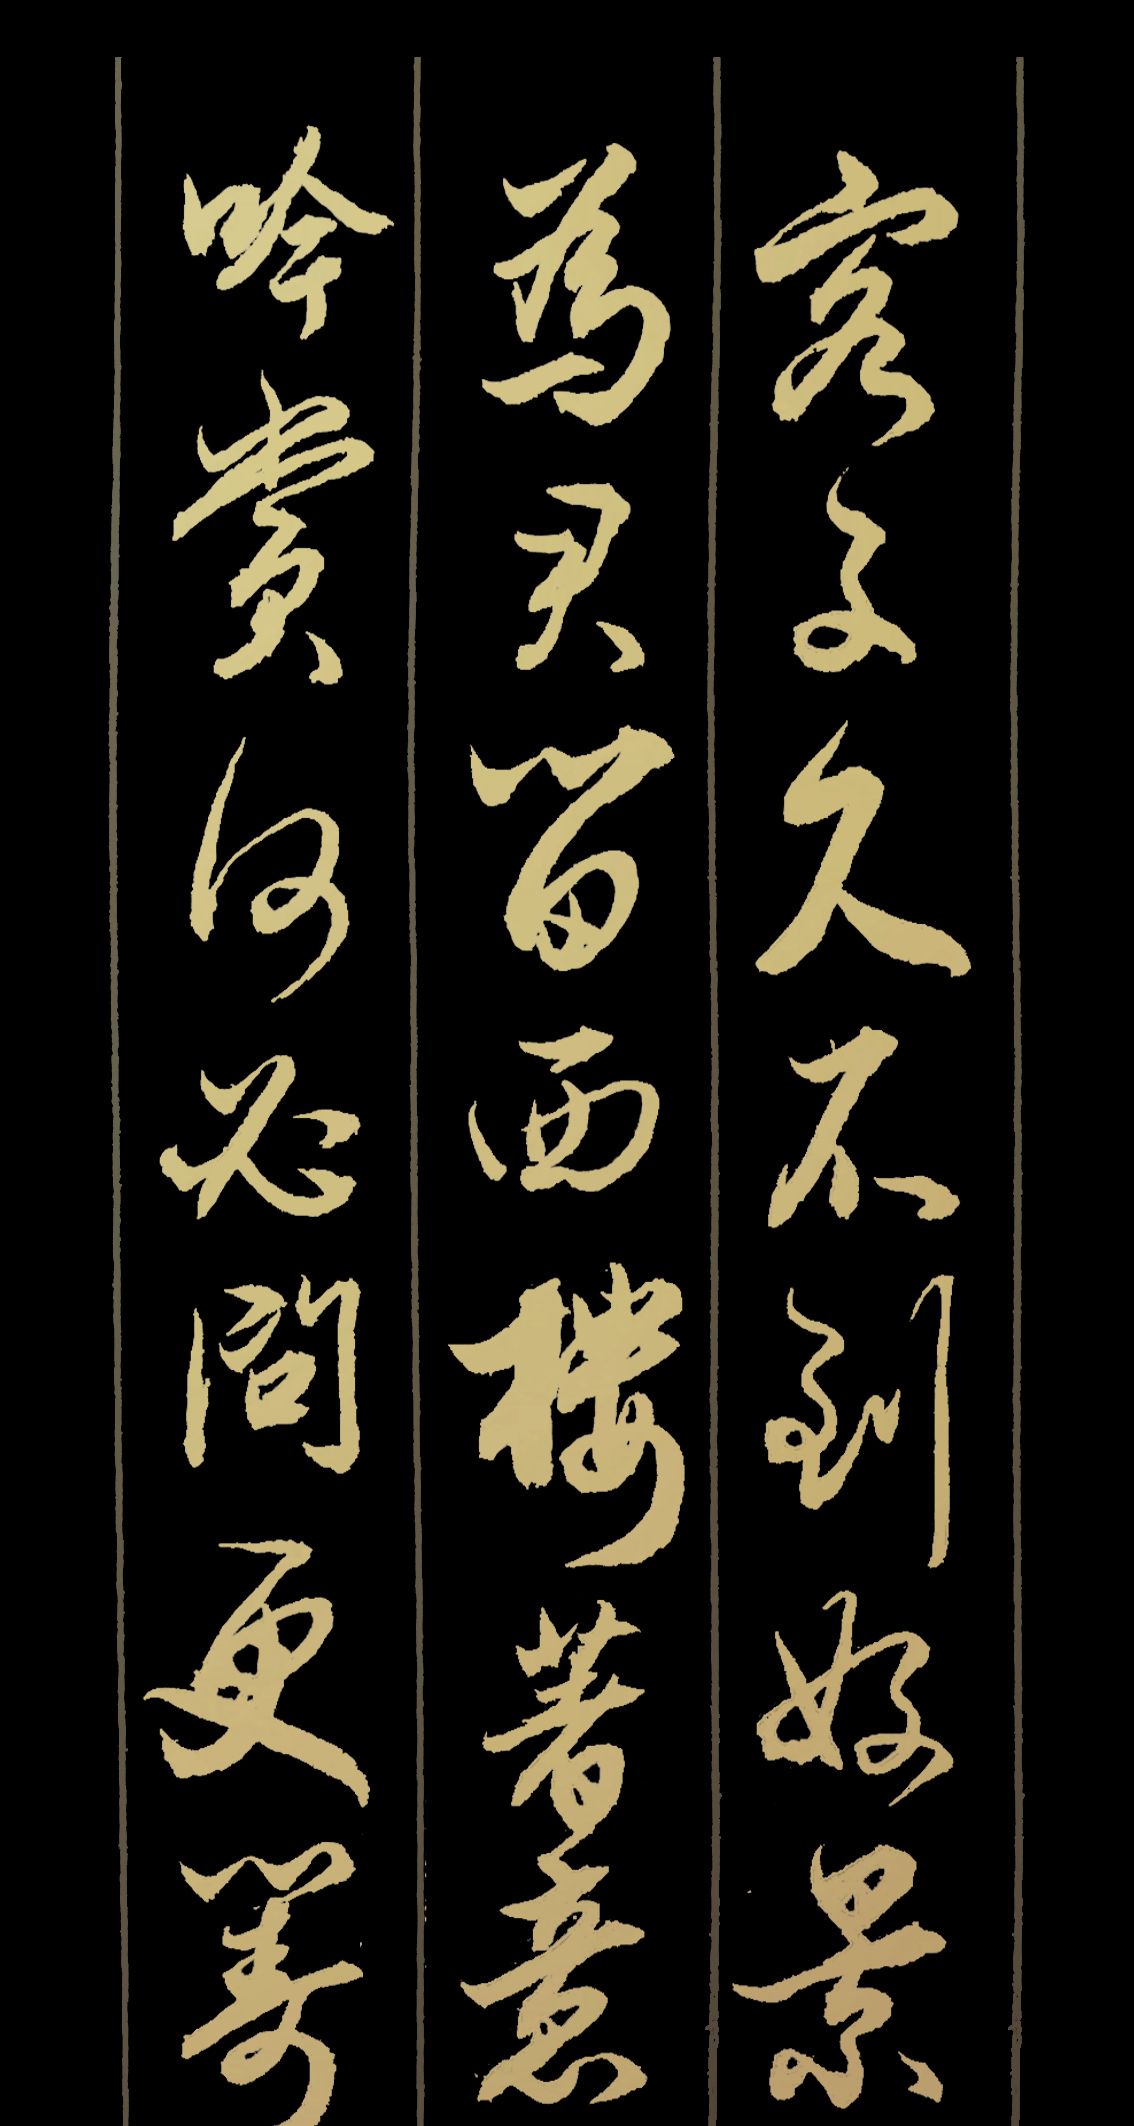 客子久不到好景
為君留西樓著意
吟賞何必問更籌